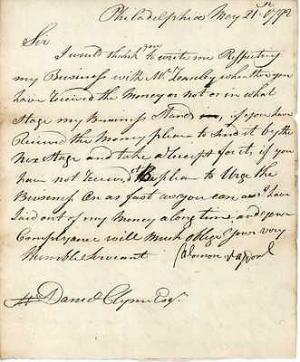 Philadelphia May 21st 1792
Sir
I would thank you to write me Respecting
my Business with Mr. whether you
have Received the Money or not or in what
Stage my Business Stands, if you have
Received the Money please to Send it by the
Next Stage and take a Receipt for it, if you
have not Received it please to Urge the
Business On as fast as you can as I have
Laid out of my Money a long time, and your
Complyance will Much oblige your very
Humble Servant
Daniel Clymer Esqr.